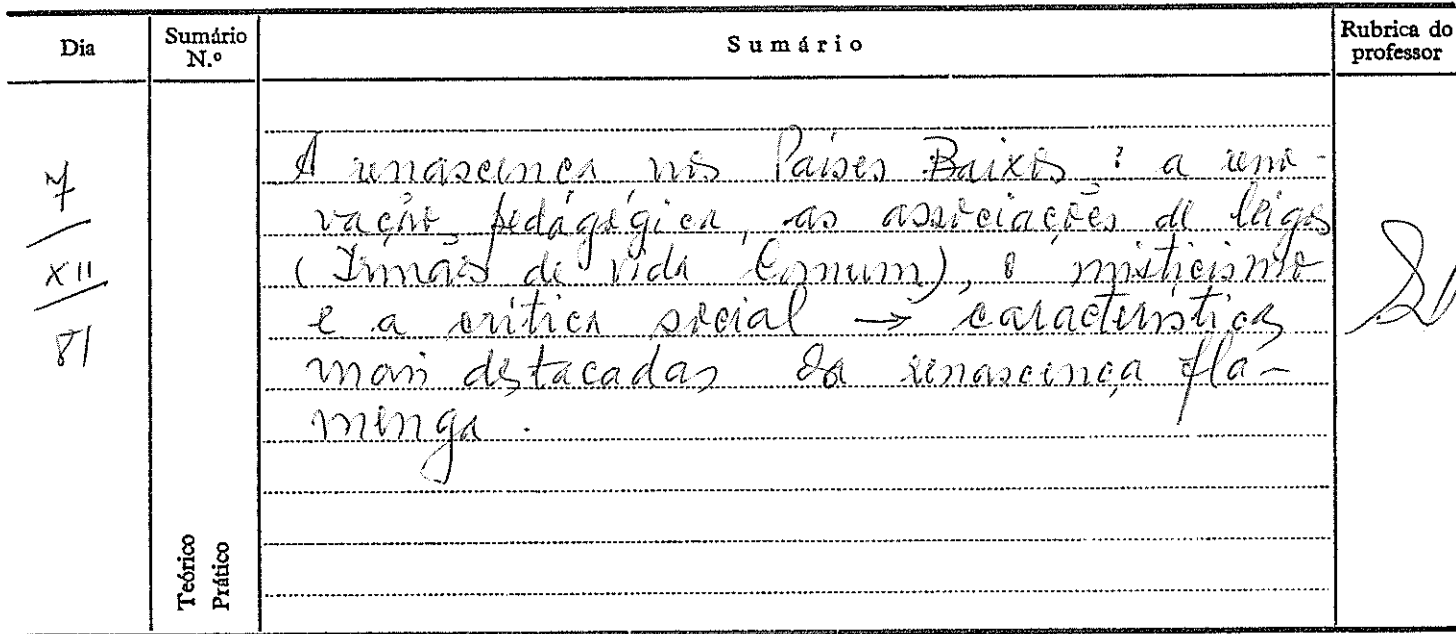 Dia Sumário N.º Sumário Rubrica do professor
7
XII
81
A renascença nos Países Baixos : a reno-
vação pedagógica, as associações de leigos
(Irmãos de Vida Comum), o misticismo
e a crítica social → características
mais destacadas da renascença fla-
menga.
Teórico
Prático